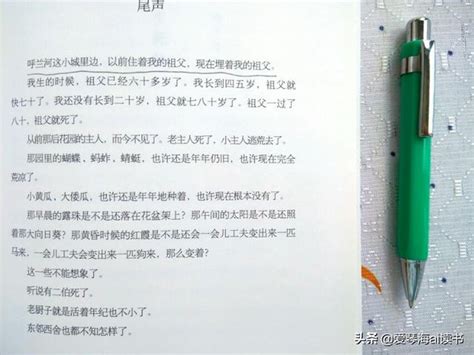 尾声
呼兰河这小城里边，以前住着我的祖父，现在埋着我的祖父。
我生的时候，祖父已经六十多岁了。我长到四五岁，祖父就
快七十了。我还没有长到二十岁，祖父就七八十岁了。祖父一过了
八十，祖父就死了。
从前那后花园的主人，而今不见了。老主人死了，小主人逃荒去了。
那园里的蝴蝶，蚂蚱，蜻蜓，也许还是年年仍旧，也许现在完全
荒凉了。
小黄瓜，大倭瓜，也许还是年年地种着，也许现在根本没有了。
那早晨的露珠是不是还落在花盆架上？那午间的太阳是不是还照
着那大向日葵？那黄昏时候的红霞是不是还会一会儿工夫会变出来一匹
马来，一会儿工夫会变出来一匹狗来，那么变着？
这一些不能想象了。
听说有二伯死了。
老厨子就是活着年纪也不小了。
东邻西舍也都不知怎样了。
头条@爱琴海al读书